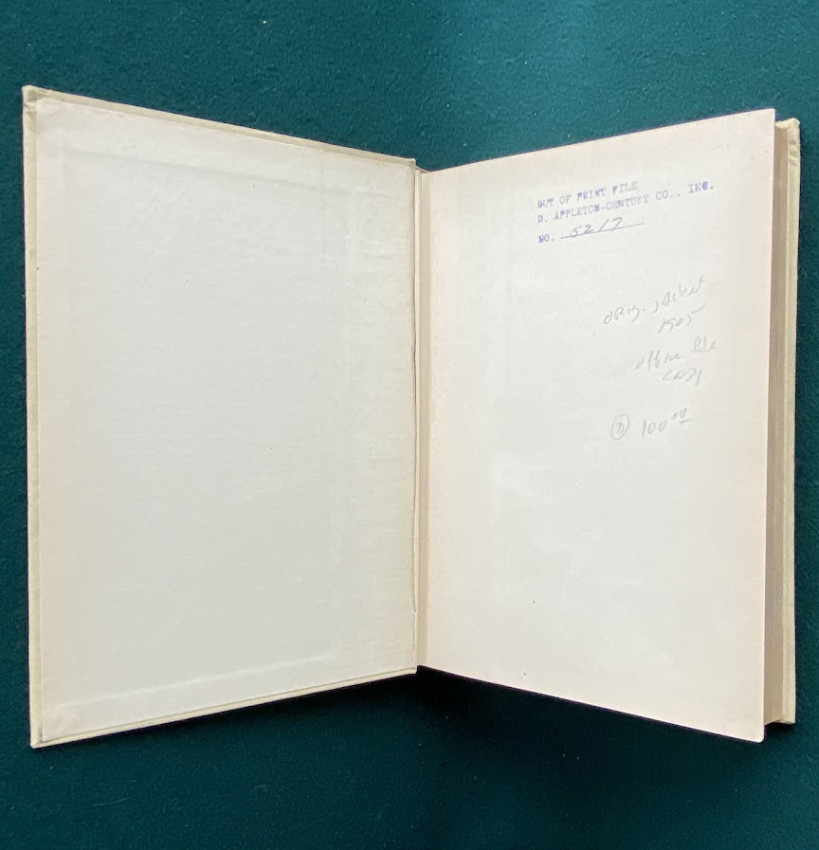 OUT OF PRINT FILE
D. APPLETON-CENTURY CO., INC.
NO. 5217
orig. jacket
1905
office file
copy
100.00